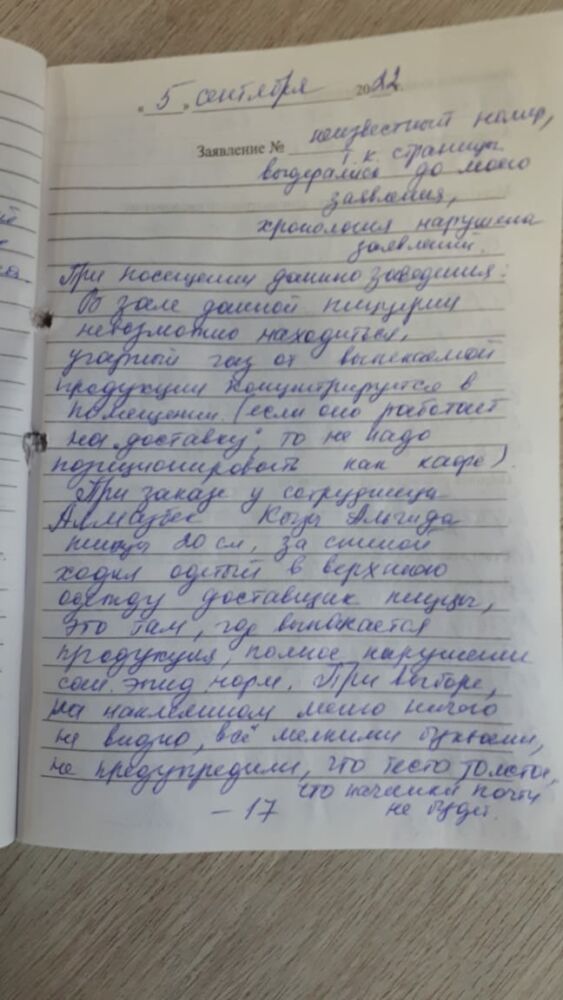 « 5 » сентября 2022 г.
Заявление № неизвестный номер,
т.к. страницы
выдерались до моего
заявления,
хронология нарушена
заявлений.
При посещении данно заведения:
В зале данной пиццерии
невозможно находиться,
угарный газ от выпекаемой
продукции концитрируется в
помещении. (если оно работает
на "доставку", то не надо
позиционировать как кафе).
При заказе у сотрудница
Алмазбек Кызы
пиццы 20 см, за спиной
ходил одетый в верхнюю
одежду доставщик пиццы,
это там, где выпекается
продукция, полное нарушении
сан. эпид норм. При выборе,
на наклеянном меню ничего
не видно, всё мелкими буквами,
не предупредили, что тесто толстое,
что начинки почти
не будет.
– 17